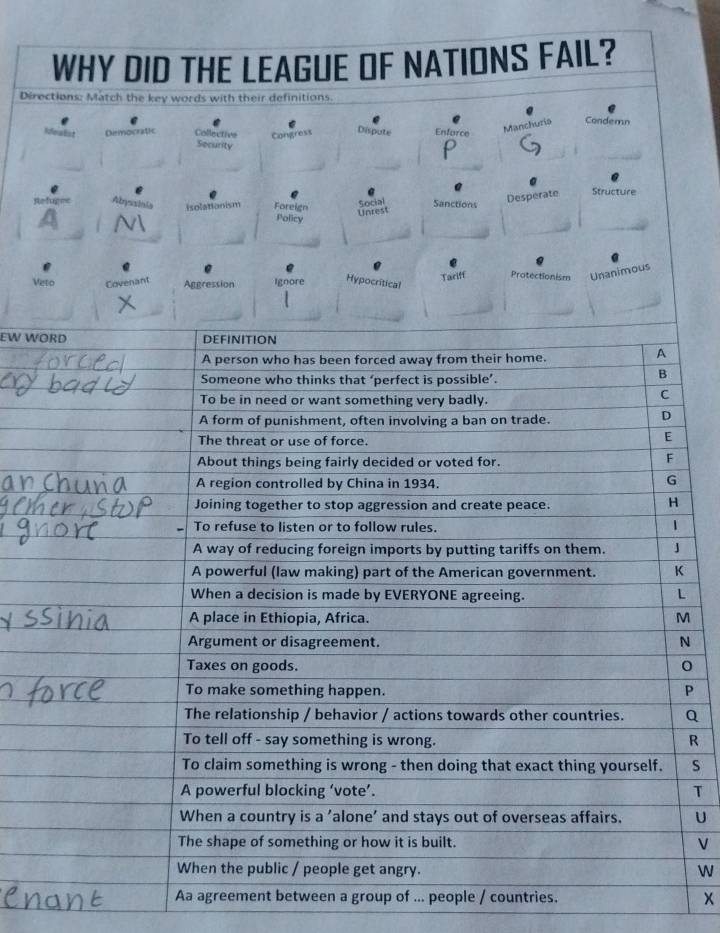 WHY DID THE LEAGUE OF NATIONS FAIL?
Directions: Match the key words with their definitions.
Idealist Democratic Collective Security Congress Dispute Enforce Manchuria Condemn
P G
Refugee Abyssinia Isolationism Foreign Policy Social Unrest Sanctions Desperate Structure
A M
Veto Covenant Aggression Ignore Hypocritical Tariff Protectionism Unanimous
X I
EW WORD DEFINITION
forced A person who has been forced away from their home. A
badly Someone who thinks that ‘perfect is possible’. B
To be in need or want something very badly. C
A form of punishment, often involving a ban on trade. D
The threat or use of force. E
About things being fairly decided or voted for. F
anchuria A region controlled by China in 1934. G
gether, stop Joining together to stop aggression and create peace. H
ignore - To refuse to listen or to follow rules. I
A way of reducing foreign imports by putting tariffs on them. J
A powerful (law making) part of the American government. K
When a decision is made by EVERYONE agreeing. L
yssinia A place in Ethiopia, Africa. M
Argument or disagreement. N
Taxes on goods. O
n force To make something happen. P
The relationship / behavior / actions towards other countries. Q
To tell off - say something is wrong. R
To claim something is wrong - then doing that exact thing yourself. S
A powerful blocking ‘vote’. T
When a country is a ‘alone’ and stays out of overseas affairs. U
The shape of something or how it is built. V
When the public / people get angry. W
enant Aa agreement between a group of ... people / countries. X